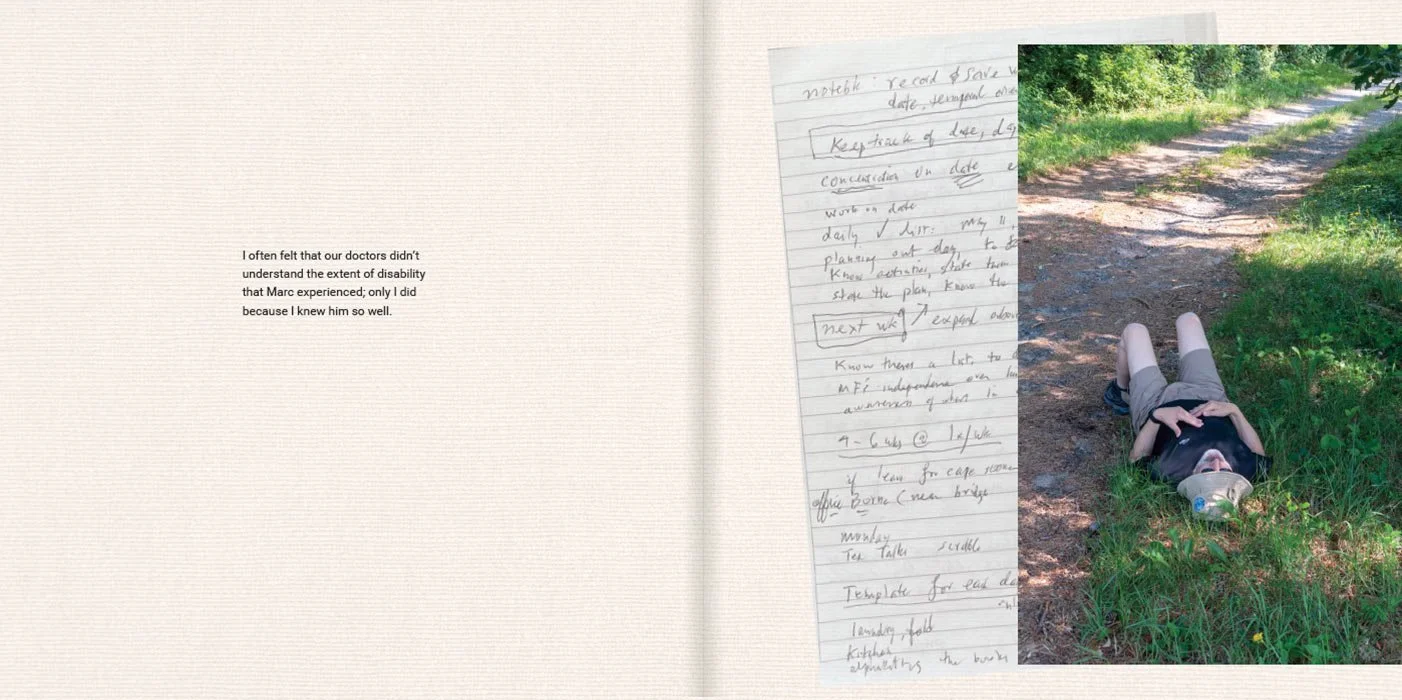 I often felt that our doctors didn’t
understand the extent of disability
that Marc experienced; only I did
because I knew him so well.
notebk: record & save
date, temporal
Keep track of date, day
concentration on date
work on date
daily ✓ list: may
planning out day, to
Know activities, state
state the plan, Know the
next wk expand
Know theres a list, to
independence over
awareness of what in
4-6 wks @ 1x/wk
if leave for cape
office Borne (near bridge
Monday
Tea Talks scrabble
Template for each
laundry, fold
Kitchen
the books